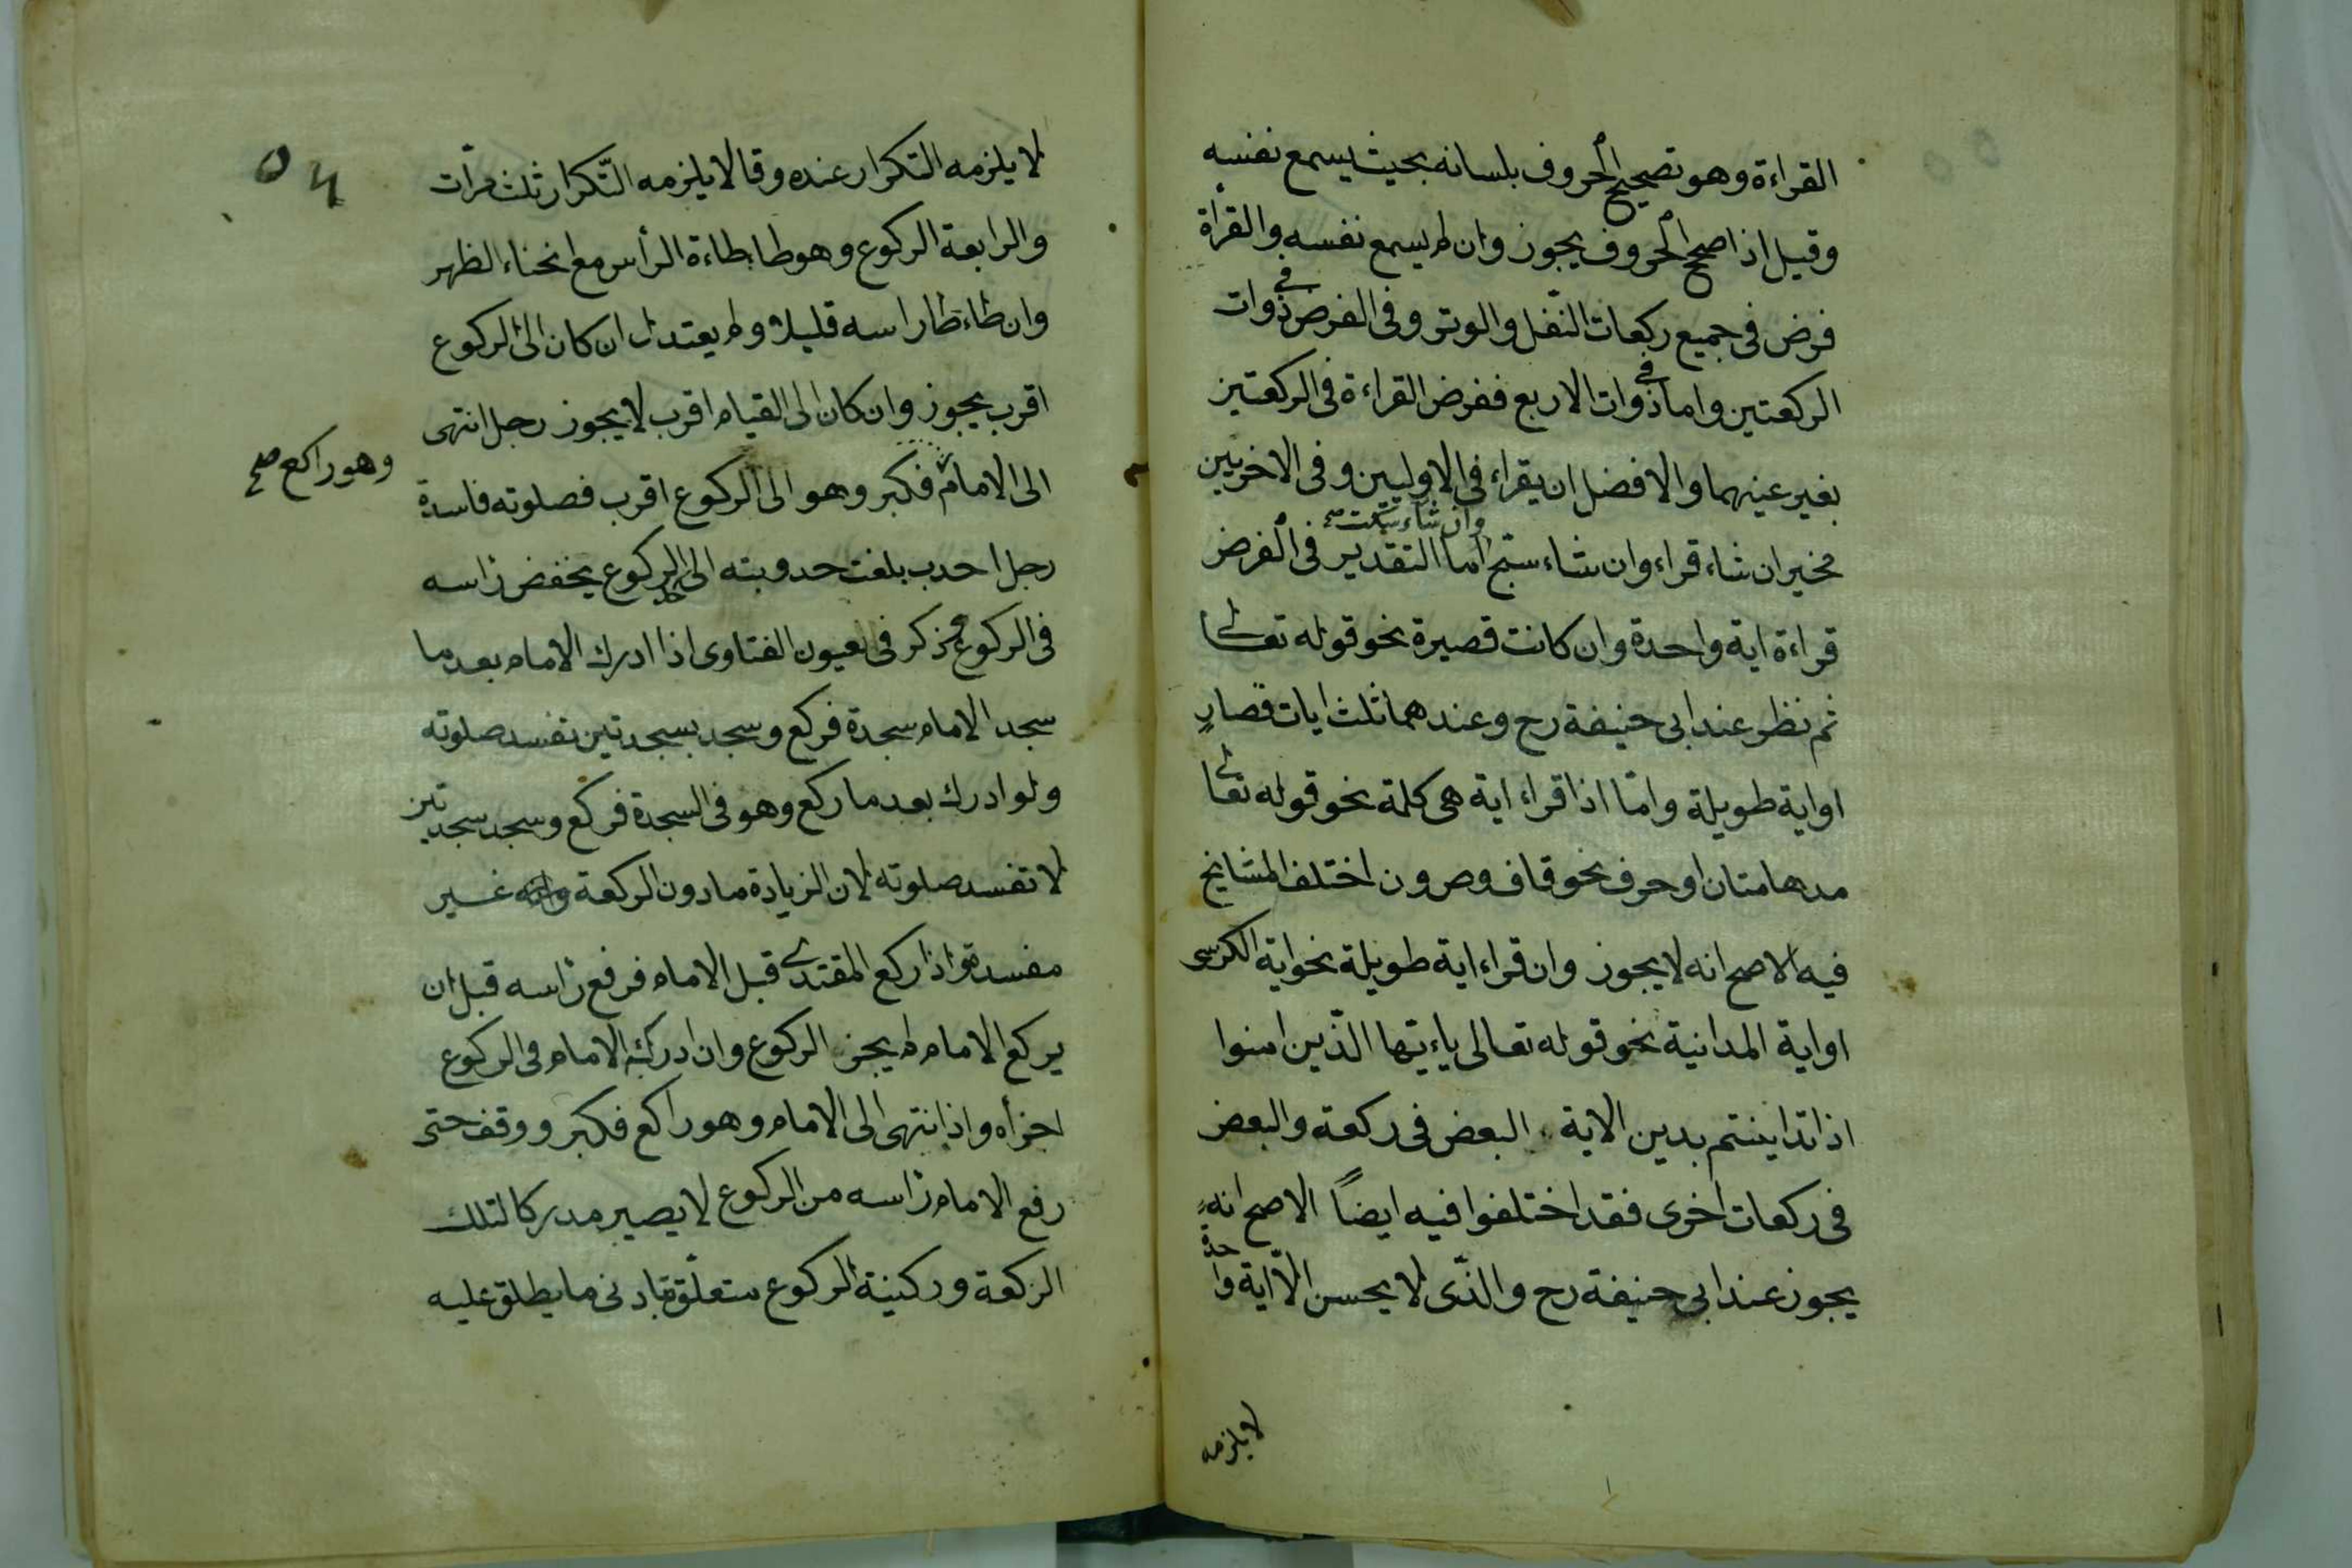 القراءة وهو تصحيح الحروف بلسانه بحيث يسمع نفسه
وقيل اذا صحح الحروف يجوز وان لم يسمع نفسه والقرأة
فرض فى جميع ركعات النّفل والوتر وفى الفرض فى ذوات
الركعتين واما فى ذوات الاربع ففرض القراءة فى الركعتين
بغير عينهما والافضل ان يقراء فى الاوليين وفى الاخريين
وان شاء سكت صح
مخير ان شاء قراء وان شاء سبّح اما التقدير فى الفرض
قراءة اية واحدة وان كانت قصيرة نحو قوله تعالى
ثم نظر عند ابى حنيفة رح وعندهما ثلث ايات قصارٍ
او اية طويلة وامّا اذا قراء اية هى كلمة نحو قوله تعا
مدهامتان او حرف نحو قاف وص ون اختلف المشايخ
فيه الاصح انه لا يجوز وان قراء اية طويلة نحو اية الكرسى
او اية المداينة نحو قوله تعالى ياءيّها الذّين امنوا
اذا تداينتم بدين الاية البعض فى ركعة والبعض
فى ركعات اخرى فقد اختلفوا فيه ايضاً الاصح انه
يجوز عند ابى حنيفة رح والذّى لا يحسن الاّ اية واحدة
لا يلزمه
٥٤
لا يلزمه التكرار عنده وقالا يلزمه التّكرار ثلث مرّات
والرابعة الركوع وهو طاءطاءة الرأس مع انحناء الظهر
وان طاءطا راسه قليلا ولم يعتدل ان كان الى الركوع
اقرب يجوز وان كان الى القيام اقرب لا يجوز رجل انتهى
وهو راكع صح
الى الامام فكبر وهو الى الركوع اقرب فصلوته فاسدة
رجل احدب بلغت حدوبته الى الركوع يخفض راسه
فى الركوع ذكر فى عيون الفتاوى اذا ادرك الامام بعد ما
سجد الامام سجدة فركع وسجد بسجدتين تفسد صلوته
ولو ادرك بعد ما ركع وهو فى السجدة فركع وسجد سجدتين
لا تفسد صلوته لان الزيادة ما دون الركعة غير
مفسدة واذا ركع المقتدى قبل الامام فرفع راسه قبل ان
يركع الامام لم يجز الركوع وان ادركه الامام فى الركوع
اجزأه واذا انتهى الى الامام وهو راكع فكبر ووقف حتى
رفع الامام راسه من الركوع لا يصير مدركا لتلك
الركعة وركنية الركوع متعلّقة بادنى ما يطلق عليه